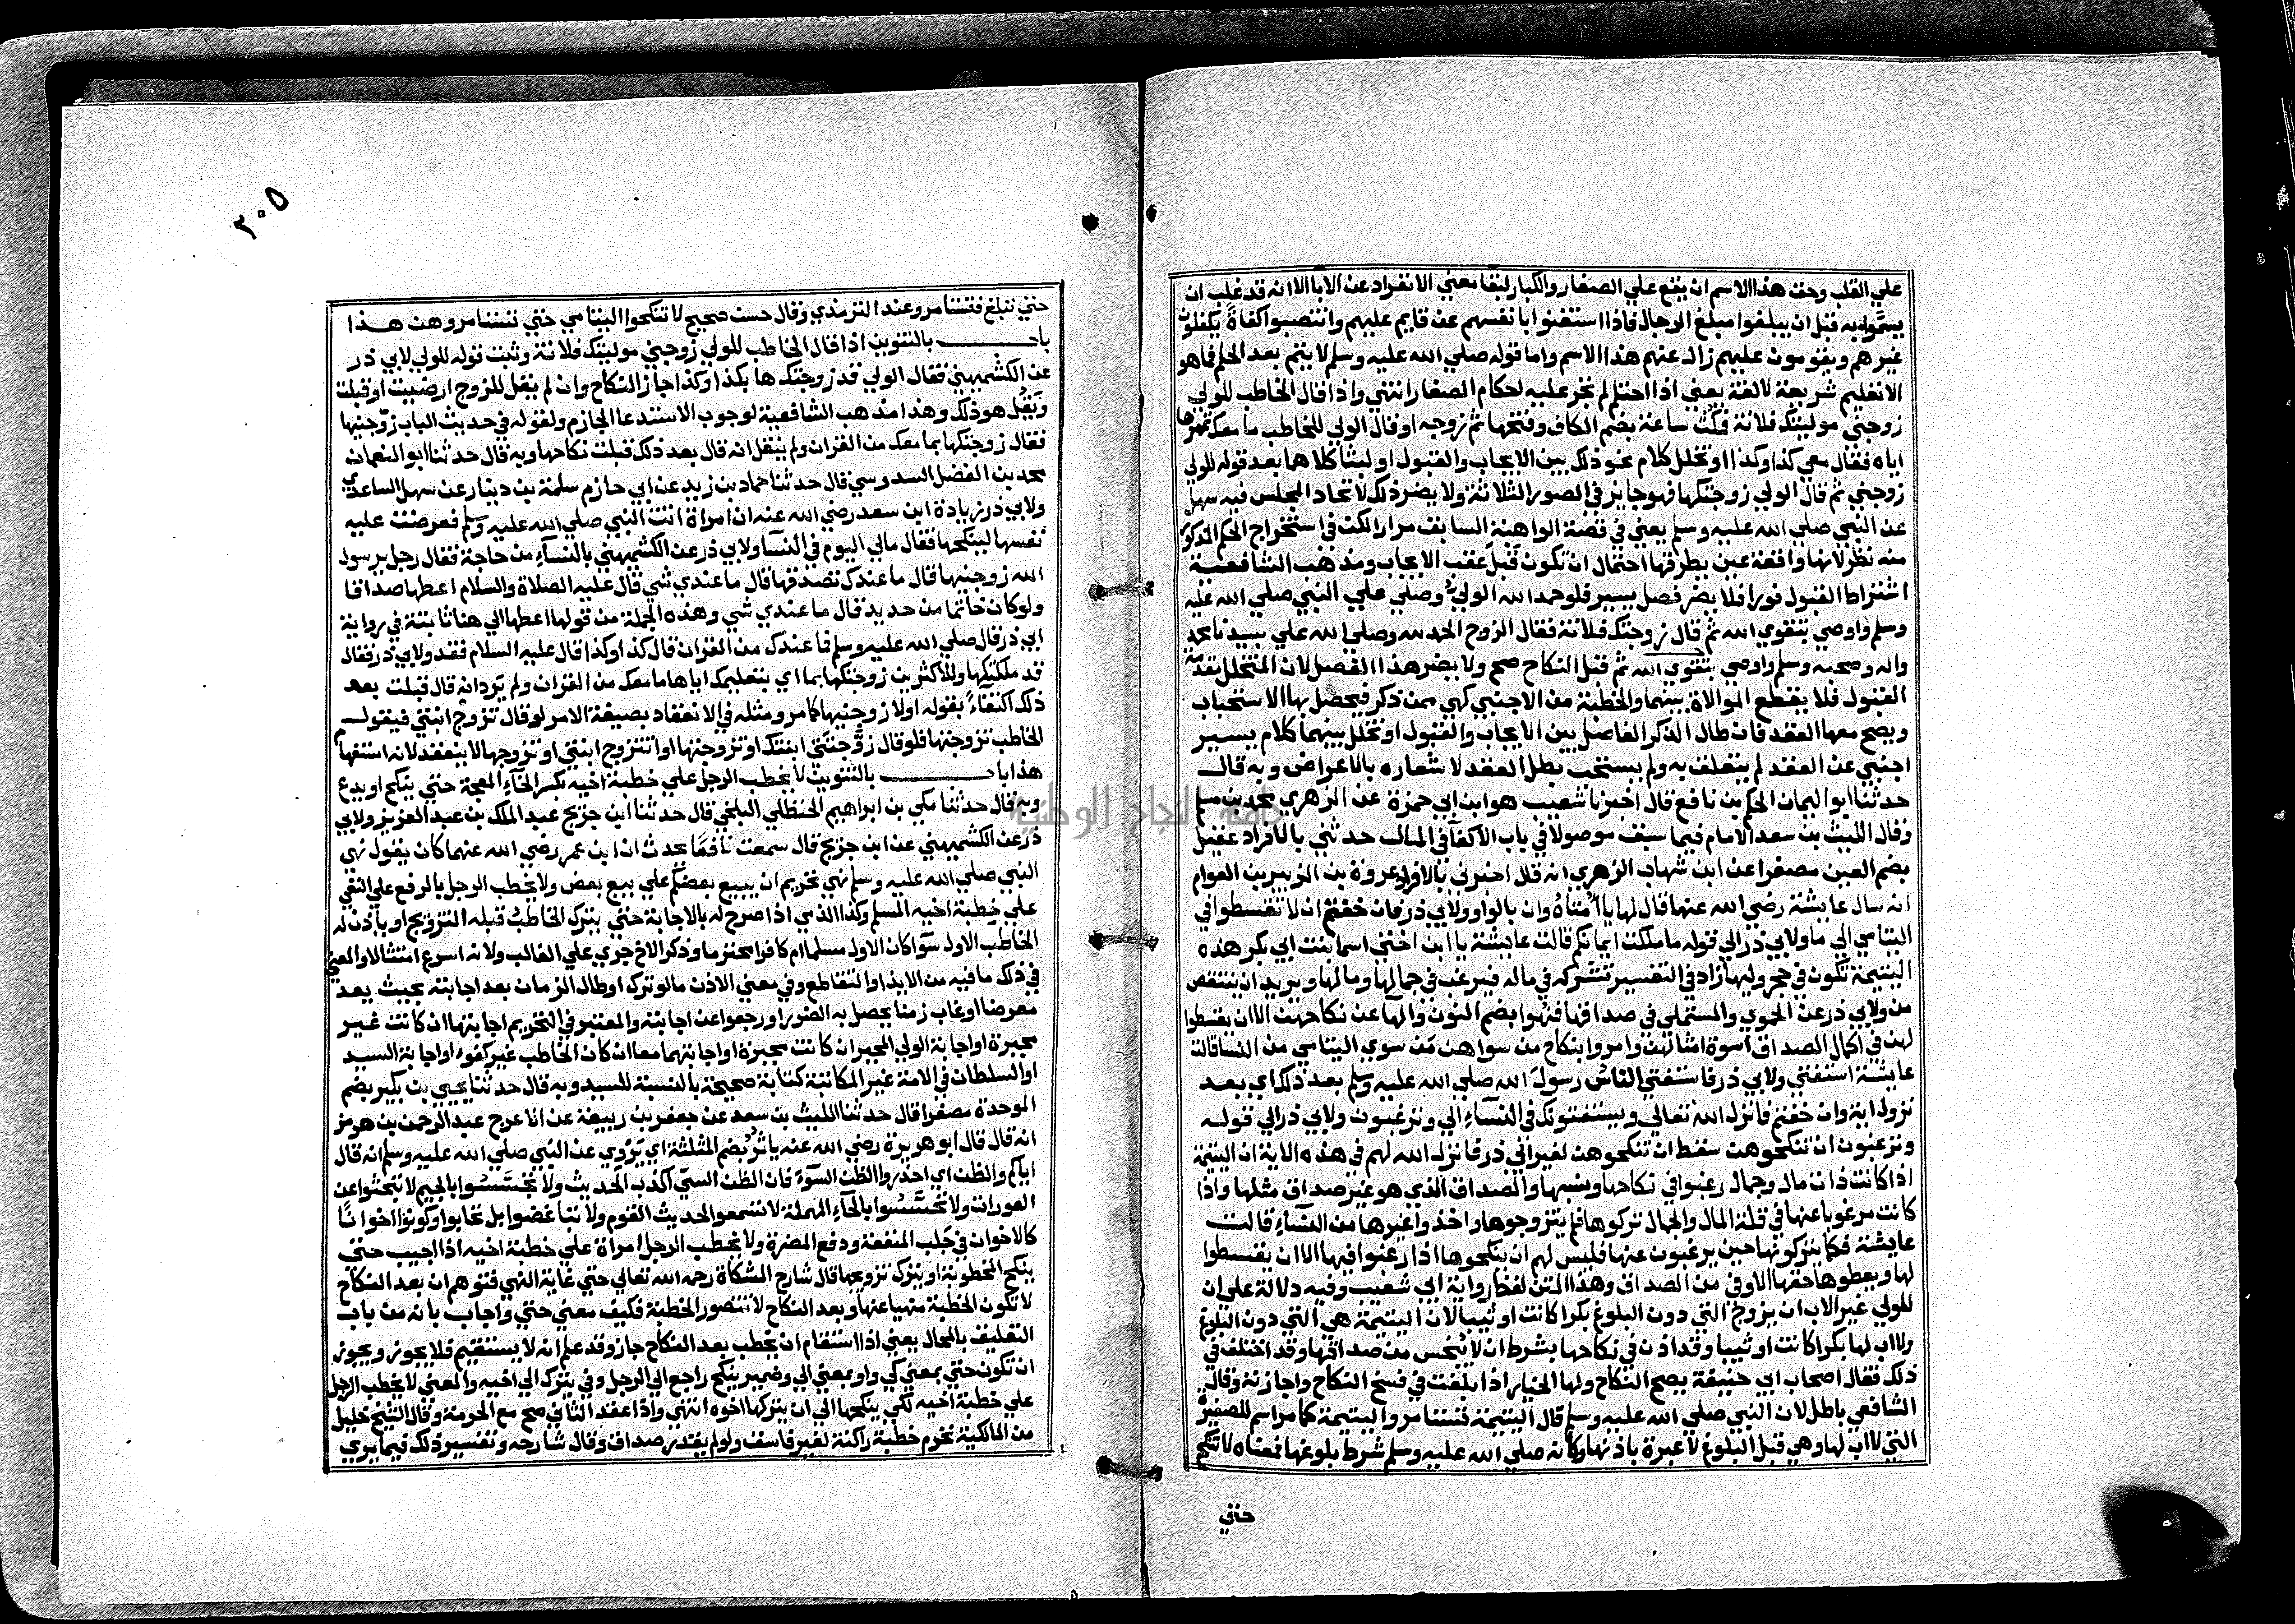 علي القلب وحق هذا الاسم ان يقع علي الصغار والكبار لبقا معني الانفراد عن الابا الا انه قد غلب ان
يسموا به قبل ان يبلغوا مبلغ الرجال فاذا استغنوا بانفسهم عن قايم عليهم وانتصبوا كفاة يكفلون
غيرهم ويقومون عليهم زال عنهم هذا الاسم واما قوله صلي الله عليه وسلم لا يتم بعد الحلم فما هو
الا تعليم شريعة لا لغة يعني اذا احتلم لم تجر عليه احكام الصغار انتهي واذا قال الخاطب للولي
زوجني موليتك فلانة فمكث ساعة بضم الكاف وفتحها ثم زوجه او قال الولي للخاطب ما معك تمهرها
اياه فقال معي كذا وكذا او تخلل كلام نحو ذلك بين الايجاب والقبول او لبثا كلاهما بعد قوله للولي
زوجني ثم قال الولي زوجتكها فهو جايز في الصور الثلاثة ولا يضر ذلك لاتحاد المجلس فيه سهل
عن النبي صلي الله عليه وسلم يعني في قصة الواهبة السابق مرارا لكن في استخراج الحكم المذكور
منه نظر لانها واقعة عين يطرقها احتمال ان تكون قبل عقب الايجاب ومذهب الشافعية
اشتراط القبول فورا فلا يضر فصل يسير فلو حمد الله الولي وصلي علي النبي صلي الله عليه
وسلم واوصي بتقوي الله ثم قال زوجتك فلانة فقال الزوج الحمد لله وصلي الله علي سيدنا محمد
واله وصحبه وسلم واوصي بتقوي الله ثم قبل النكاح صح ولا يضر هذا الفصل لان المتخلل مقدمة
القبول فلا يقطع الموالاة بينهما والخطبة من الاجنبي كهي ممن ذكر فيحصل بها الاستحباب
ويصح معها العقد فان طال الذكر الفاصل بين الايجاب والقبول او تخلل بينهما كلام يسير
اجنبي عن العقد لم يتعلق به ولم يستحب بطل العقد لاشعاره بالاعراض وبه قال
حدثنا ابو اليمان الحكم بن نافع قال اخبرنا شعيب هو ابن ابي حمزة عن الزهري محمد بن مسلم
وقال الليث بن سعد الامام فيما سبق موصولا في باب الاكفا في المال حدثني بالافراد عقيل
بضم العين مصغرا عن ابن شهاب الزهري انه قال اخبرني بالافراد عروة بن الزبير بن العوام
انه سال عايشة رضي الله عنها قال لها يا امتاه وان بالواو ولابي ذر فان خفتم ان لا تقسطوا في
اليتامي الي ما ولابي ذر الي قوله ما ملكت ايمانكم قالت عايشة يا ابن اختي اسما بنت ابي بكر هذه
اليتيمة تكون في حجر وليها زاد في التفسير تشركه في ماله فيرغب في جمالها ومالها ويريد ان ينتقص
من ولابي ذر عن الحموي والمستملي في صداقها فنهوا بضم النون والها عن نكاحهن الا ان يقسطوا
لهن في اكمال الصداق اسوة امثالهن وامروا بنكاح من سواهن من سوي اليتامي من النسا قالت
عايشة استفتي ولابي ذر فاستفتي الناس رسول الله صلي الله عليه وسلم بعد ذلك اي بعد
نزول اية وان خفتم فانزل الله تعالي ويستفتونك في النساء الي وترغبون ولابي ذر الي قوله
وترغبون ان تنكحوهن سقط ان تنكحوهن لغير ابي ذر فانزل الله لهم في هذه الاية ان اليتيمة
اذا كانت ذات مال وجمال رغبوا في نكاحها ونسبها والصداق الذي هو غير صداق مثلها واذا
كانت مرغوبا عنها في قلة المال والجمال تركوها فلم يتزوجوها واخذوا غيرها من النساء قالت
عايشة فكما يتركونها حين يرغبون عنها فليس لهم ان ينكحوها اذا رغبوا فيها الا ان يقسطوا
لها ويعطوها حقها الاوفي من الصداق وهذا المتن لفظ رواية ابي شعيب وفيه دلالة علي ان
للولي غير الاب ان يزوج التي دون البلوغ بكرا كانت او ثيبا لان اليتيمة هي التي دون البلوغ
ولا اب لها بكرا كانت او ثيبا وقد اذن في نكاحها بشرط ان لا يبخس من صداقها وقد اختلف في
ذلك فقال اصحاب ابي حنيفة يصح النكاح ولها الخيار اذا بلغت في فسخ النكاح واجازته وقال
الشافعي باطل لان النبي صلي الله عليه وسلم قال اليتيمة تستامر واليتيمة كما مر اسم للصغيرة
التي لا اب لها وهي قبل البلوغ لا عبرة باذنها وكأنه صلي الله عليه وسلم شرط بلوغها فمعناه لا تنكح
حتي
٢٠٥
حتي تبلغ فتستامر وعند الترمذي وقال حسن صحيح لا تنكحوا اليتامي حتي تستامروهن هذا
باب بالتنوين اذا قال الخاطب للولي زوجني موليتك فلانة وثبت قوله للولي لابي ذر
عن الكشميهني فقال الولي قد زوجتكها بكذا وكذا جاز النكاح وان لم يقل للزوج ارضيت او قبلت
ويقبل هو ذلك وهذا مذهب الشافعية لوجوب الاستدعا الجازم ولقوله في حديث الباب زوجنيها
فقال زوجتكها بما معك من القران ولم ينقل انه قال بعد ذلك قبلت نكاحها وبه قال حدثنا ابو النعمان
محمد بن الفضل السدوسي قال حدثنا حماد بن زيد عن ابي حازم سلمة بن دينار عن سهل الساعدي
ولابي ذر زيادة ابن سعد رضي الله عنه ان امراة اتت النبي صلي الله عليه وسلم فعرضت عليه
نفسها لينكحها فقال مالي اليوم في النسا ولابي ذر عن الكشميهني بالنساء من حاجة فقال رجل يرسول
الله زوجنيها قال ما عندك تصدقها قال ما عندي شي قال عليه الصلاة والسلام اعطها صداقا
ولو كان خاتما من حديد قال ما عندي شي وهذه الجملة من قوله اعطها الي هنا ثابتة في رواية
ابي ذر قال صلي الله عليه وسلم فما عندك من القران قال كذا وكذا قال عليه السلام فقد ولابي ذر فقال
قد ملكتكها وللاكثرين زوجتكها بما اي بتعليمك اياها ما معك من القران ولم يرد انه قال قبلت بعد
ذلك اكتفاء بقوله اولا زوجنيها كما مر ومثله في الانعقاد بصيغة الامر لو قال تزوج ابنتي فيقول
الخاطب تزوجتها فلو قال زوجتني ابنتك او تزوجنيها او اتتزوج ابنتي او تزوجها لا ينعقد لانه استفهام
هذا باب بالتنوين لا يخطب الرجل علي خطبة اخيه بكسر الخاء المعجمة حتي ينكح او يدع
وبه قال حدثنا مكي بن ابراهيم الحنظلي البلخي قال حدثنا ابن جريج عبد الملك بن عبد العزيز ولابي
ذر عن الكشميهني عن ابن جريج قال سمعت نافعا يحدث ان ابن عمر رضي الله عنهما كان يقول نهي
النبي صلي الله عليه وسلم نهي تحريم ان يبيع بعضكم علي بيع بعض ولا يخطب الرجل بالرفع علي النفي
علي خطبة اخيه المسلم وكذا الذمي اذا صرح له بالاجابة حتي يترك الخاطب قبله التزويج او ياذن له
الخاطب الاول سوآ كان الاول مسلما ام كافرا محترما وذكر الاخ جري علي الغالب ولانه اسرع امتثالا والمعني
في ذلك ما فيه من الايذا والتقاطع وفي معني الاذن ما لو ترك او طال الزمان بعد اجابته بحيث يعد
معرضا او غاب زمنا يحصل به الضرر او رجعوا عن اجابته والمعتبر في التحريم اجابتها ان كانت غير
مجبرة او اجابة الولي المجبر ان كانت مجبرة او اجابتهما معا ان كان الخاطب غير كفوء او اجابة السيد
او السلطان في الامة غير المكاتبة كتابة صحيحة بالنسبة للسيد وبه قال حدثنا يحيي بن بكير بضم
الموحدة مصغرا قال حدثنا الليث بن سعد عن جعفر بن ربيعة عن الاعرج عبد الرحمن بن هرمز
انه قال قال ابو هريرة رضي الله عنه ياثر بضم المثلثة اي يروي عن النبي صلي الله عليه وسلم انه قال
اياكم والظن اي احذروا الظن السوء فان الظن السيّ اكذب الحديث ولا تجسسوا بالجيم لا تبحثوا عن
العورات ولا تحسسوا بالحآء المهملة لا تستمعوا لحديث القوم ولا تباغضوا بل تحابوا وكونوا اخوانا
كالاخوان في جلب المنفعة ودفع المضرة ولا يخطب الرجل امراة علي خطبة اخيه اذا اجيب حتي
ينكح المخطوبة او يترك تزويجها قال شارح المشكاة رحمه الله تعالي حتي غاية النهي فتوهم ان بعد النكاح
لا تكون الخطبة منهيا عنها وبعد النكاح لا تتصور الخطبة فكيف معني حتي واجاب بانه من باب
التعليق بالمحال يعني اذا استقام ان يخطب بعد النكاح جاز وقد علم انه لا يستقيم فلا يجوز ويجوز
ان تكون حتي بمعني كي واو بمعني الي وضمير ينكح راجع الي الرجل وفي يترك الي اخيه والمعني لا يخطب الرجل
علي خطبة اخيه لكي ينكحها الي ان يتركها اخوه انتهي واذا عقد الثاني صح مع الحرمة وقال الشيخ خليل
من المالكية تحرم خطبة راكنة لغير فاسق ولو لم يقدر صداق وقال شارحه وتفسير ذلك فيما يري